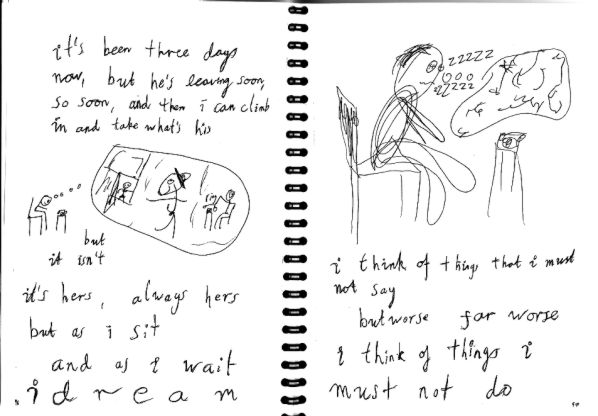 it's been three days
now, but he's leaving soon,
so soon, and then i can climb
in and take what's his
but
it isn't
it's hers, always hers
but as i sit
and as i wait
i dream
zzzzz
zzzzz
i think of things that i must
not say
but worse far worse
i think of things i
must not do